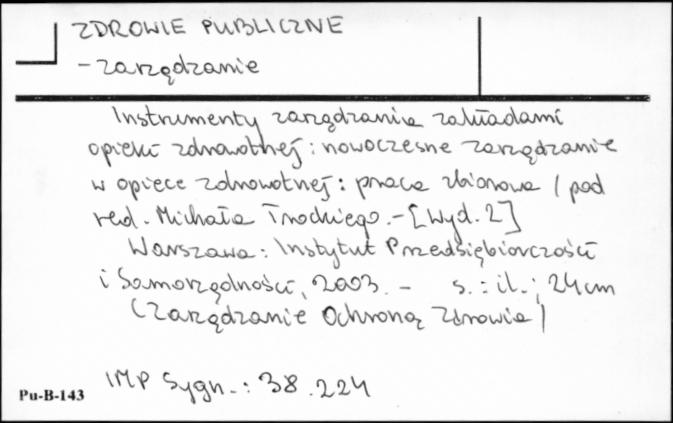 ZDROWIE PUBLICZNE
- zarządzanie
Instrumenty zarządzania zakładami
opieki zdrowotnej : nowoczesne zarządzanie
w opiece zdrowotnej : praca zbiorowa / pod
red. Michała Trockiego. - [Wyd. 2]
Warszawa : Instytut Przedsiębiorczości
i Samorządności, 2003. - s. : il. ; 24 cm
(Zarządzanie Ochroną Zdrowia)
IMP Sygn. : 38.224
Pu-B-143